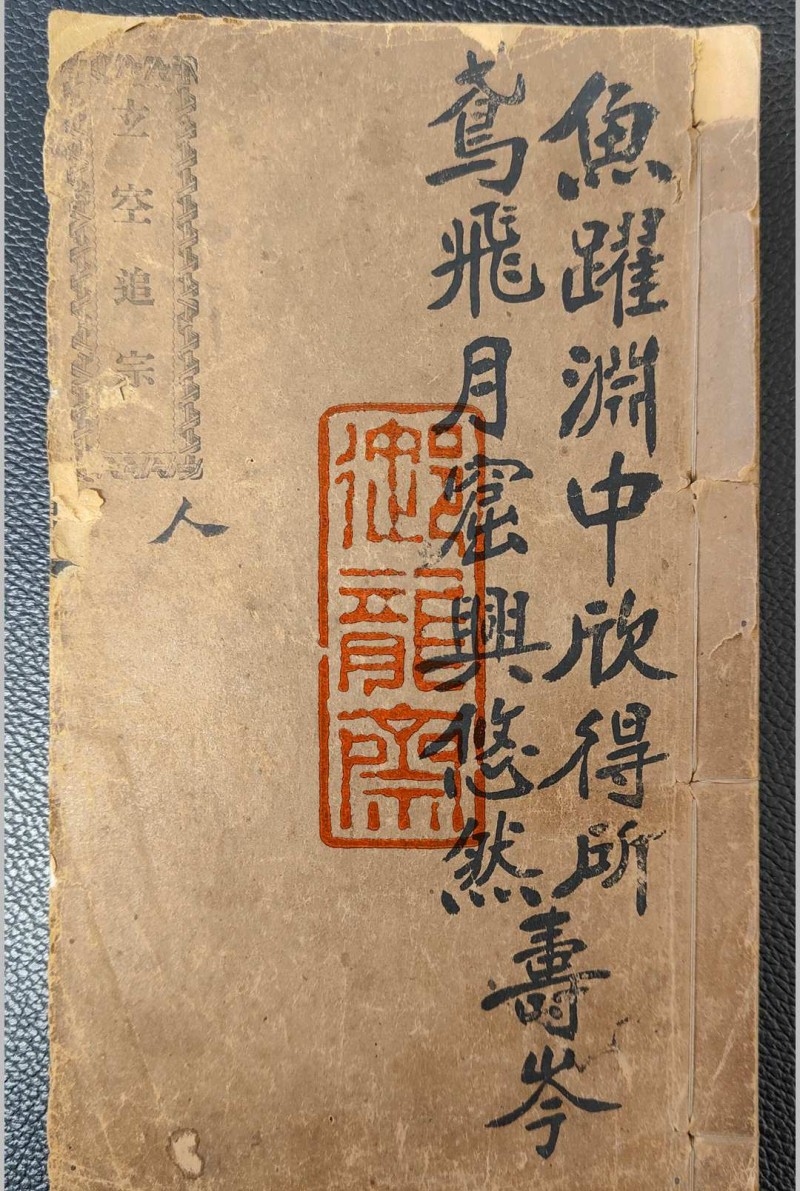 魚躍淵中欣得所
鳶飛月窟興悠然
壽岑
御龍齋
玄空追宗
人